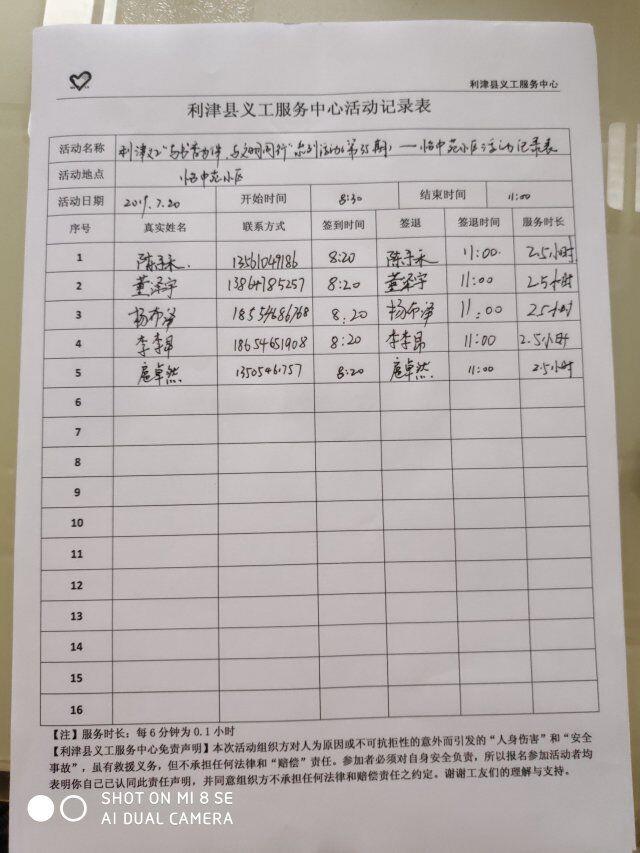 利津县义工服务中心
利津县义工服务中心活动记录表
活动名称 利津义工"与书香为伴，与文明同行"系列活动（第35期）——怡中苑小区活动记录表
活动地点 怡中苑小区
活动日期 2019.7.20 开始时间 8:30 结束时间 11:00
序号 真实姓名 联系方式 签到时间 签退 签退时间 服务时长
1 陈子永 13561049186 8:20 陈子永 11:00 2.5小时
2 董泽宇 13864785257 8:20 董泽宇 11:00 2.5小时
3 杨布泽 18554686768 8:20 杨布泽 11:00 2.5小时
4 18654651908 8:20 11:00 2.5小时
5 扈卓然 8:20 扈卓然 11:00 2.5小时
6
7
8
9
10
11
12
13
14
15
16
【注】服务时长：每6分钟为0.1小时
【利津县义工服务中心免责声明】本次活动组织方对人为原因或不可抗拒性的意外而引发的"人身伤害"和"安全
事故"，虽有救援义务，但不承担任何法律和"赔偿"责任。参加者必须对自身安全负责，所以报名参加活动者均
表明你自己已认同此责任声明，并同意组织方不承担任何法律和赔偿责任之约定。谢谢工友们的理解与支持。
SHOT ON MI 8 SE
AI DUAL CAMERA